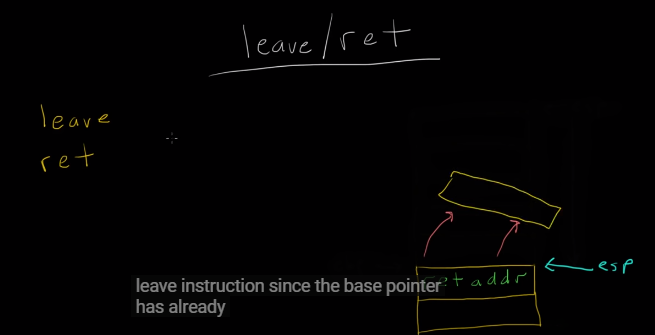 leave/ret
leave
ret
esp
ret addr
leave instruction since the base pointer
has already